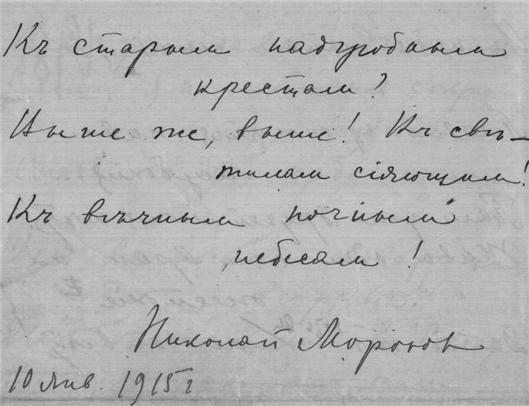 Къ старымъ надгробнымъ
крестамъ?
Выше же, выше! Къ свѣ-
тиламъ сіяющимъ!
Къ вѣчнымъ ночнымъ
небесамъ!
Николай Морозовъ
10 янв. 1915 г